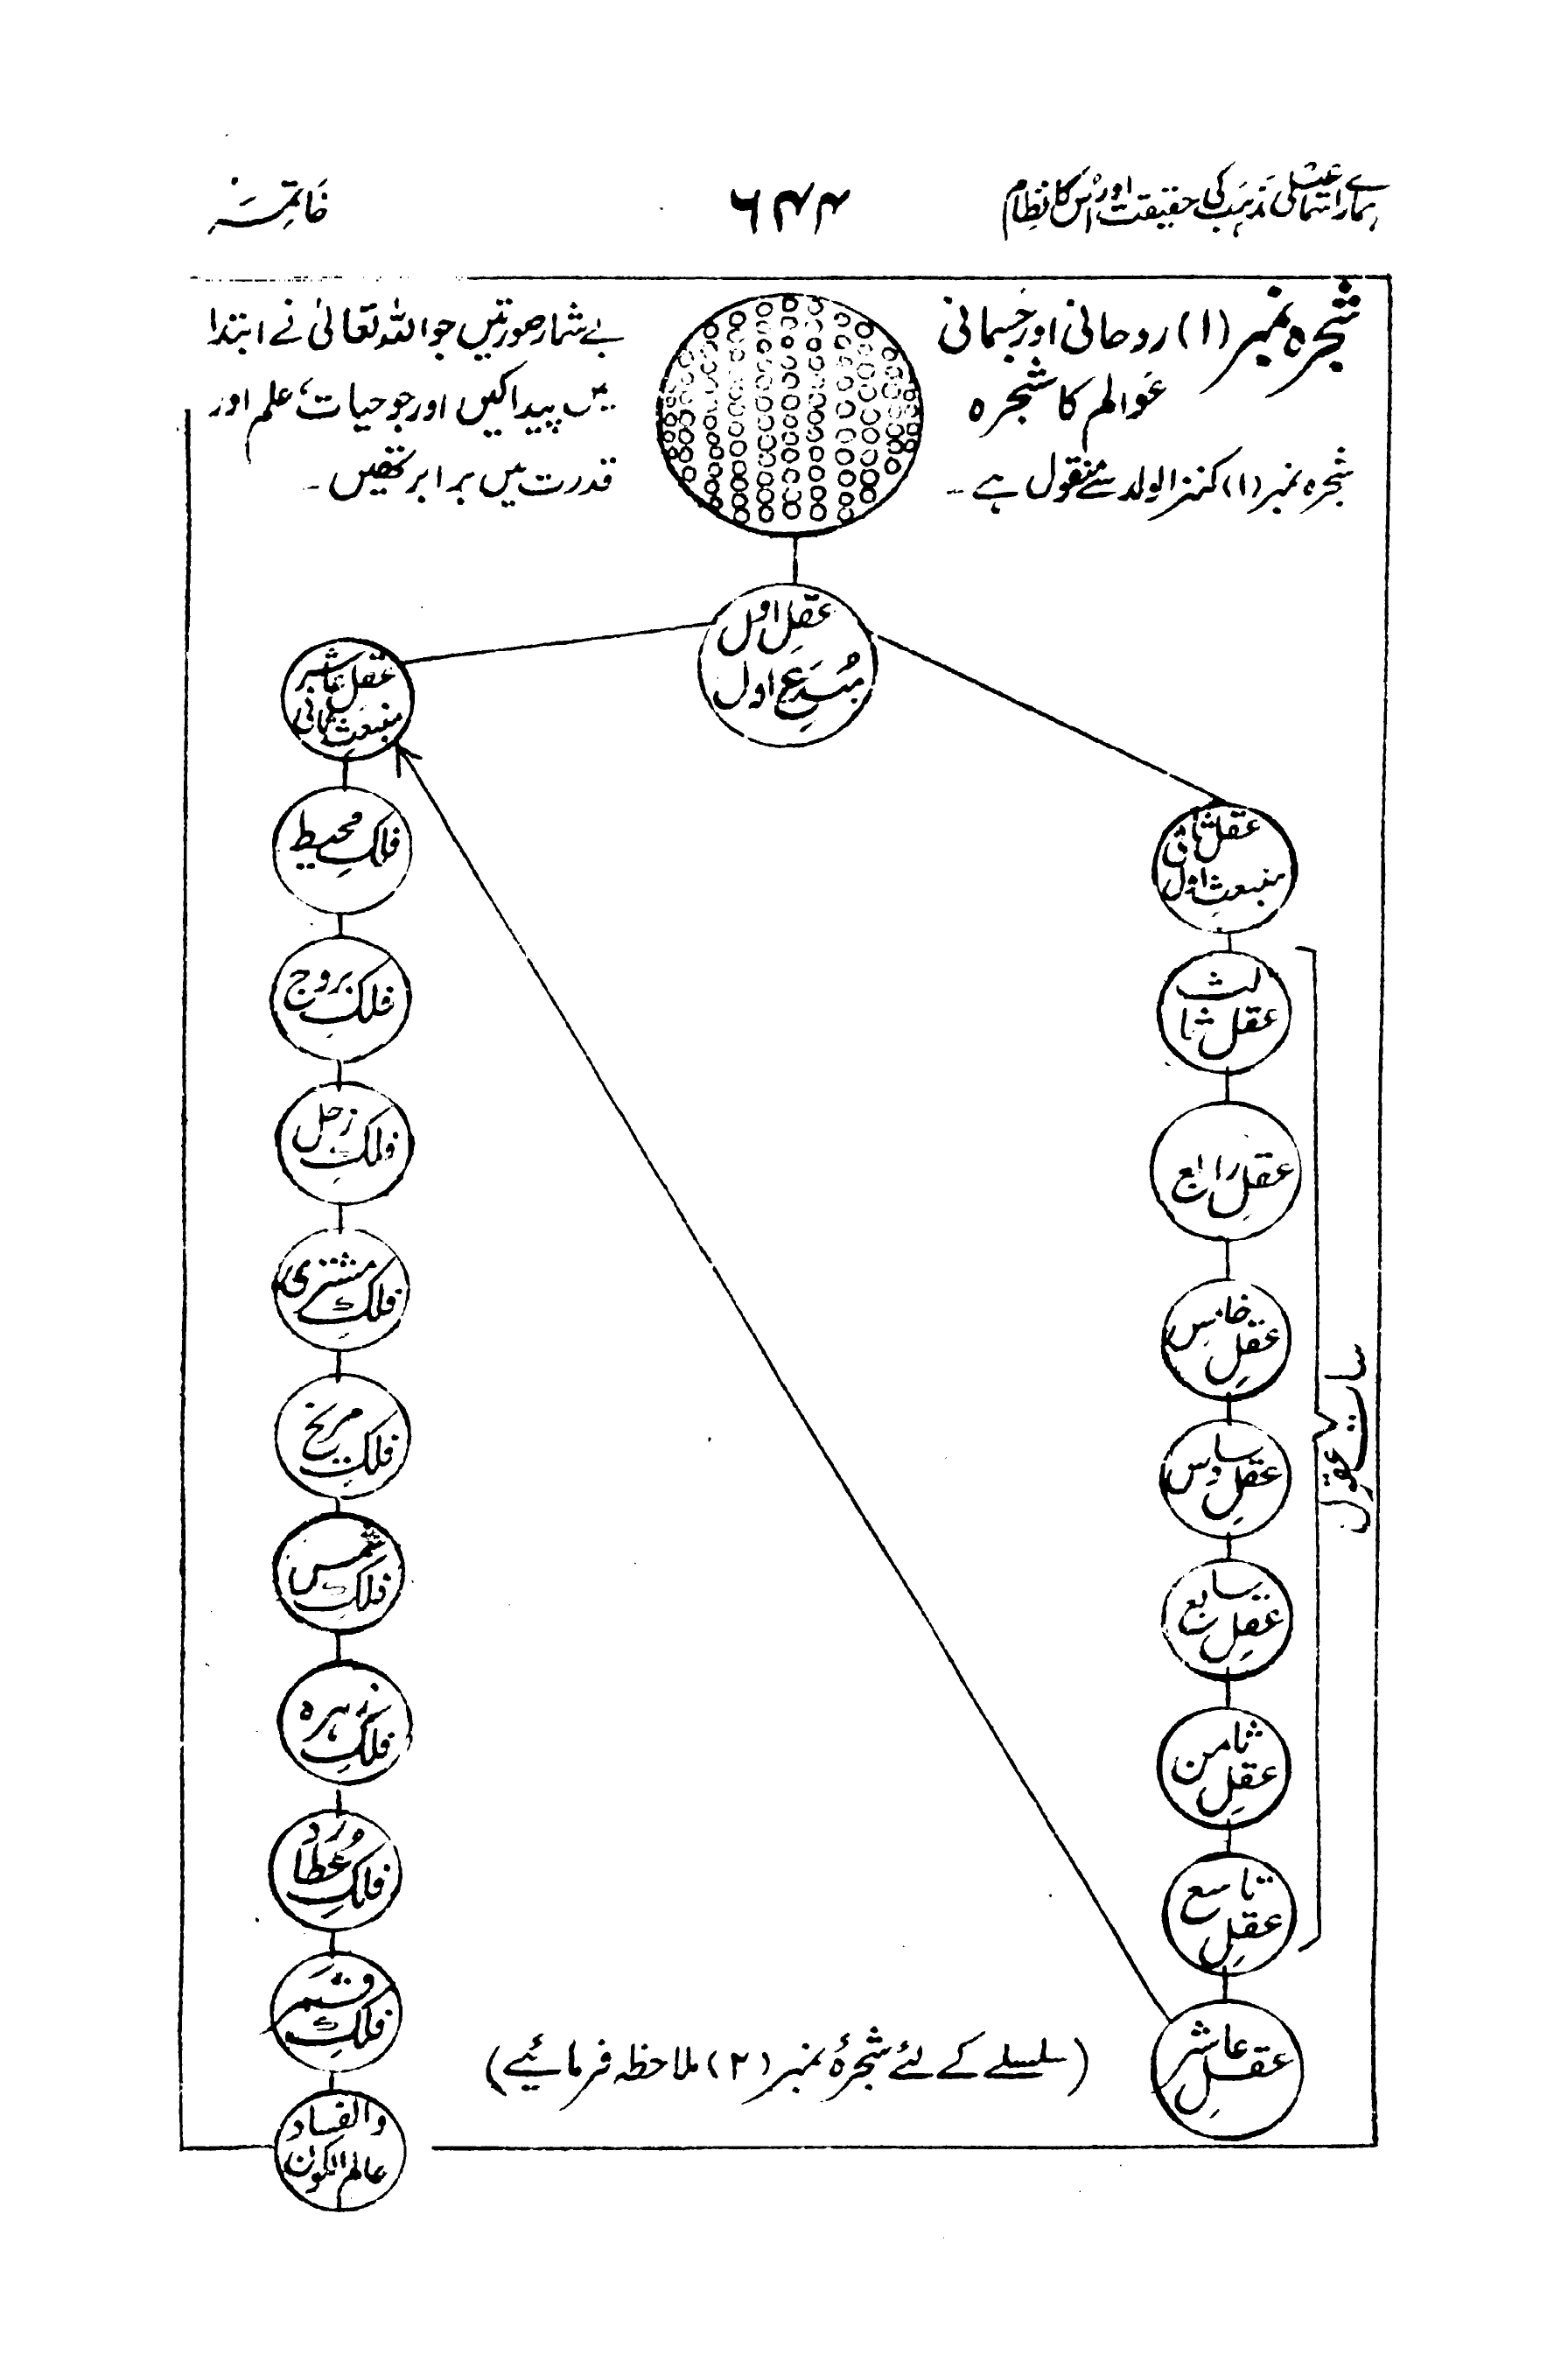 ہمارے اسماعیلی مذہب کی حقیقت اور اس کا نظام
۶۴۴
خاتمہ
شجرہ نمبر (۱) روحانی اور جسمانی
عوالم کا شجرہ
شجرہ نمبر (۱) کنز الولد سے منقول ہے۔
بے شمار صورتیں جو اللہ تعالیٰ نے ابتدا
میں پیدا کیں اور جو حیات، علم اور
قدرت میں برابر تھیں۔
عقلِ اول
مُبدَعِ اول
عقل ثانی
منبعثِ اول
عقلِ ثالث
عقلِ رابع
عقلِ خامس
عقلِ سادس
عقلِ سابع
عقلِ ثامن
عقلِ تاسع
عقلِ عاشر
سات عقول
عقل عاشر
منبعث ثانی
فلکِ محیط
فلکِ بروج
فلکِ زحل
فلکِ مشتری
فلکِ مریخ
فلکِ شمس
فلکِ زہرہ
فلکِ عطارد
فلکِ قمر
عالم الکون والفساد
(سلسلے کے لئے شجرۂ نمبر (۲) ملاحظہ فرمائیے)